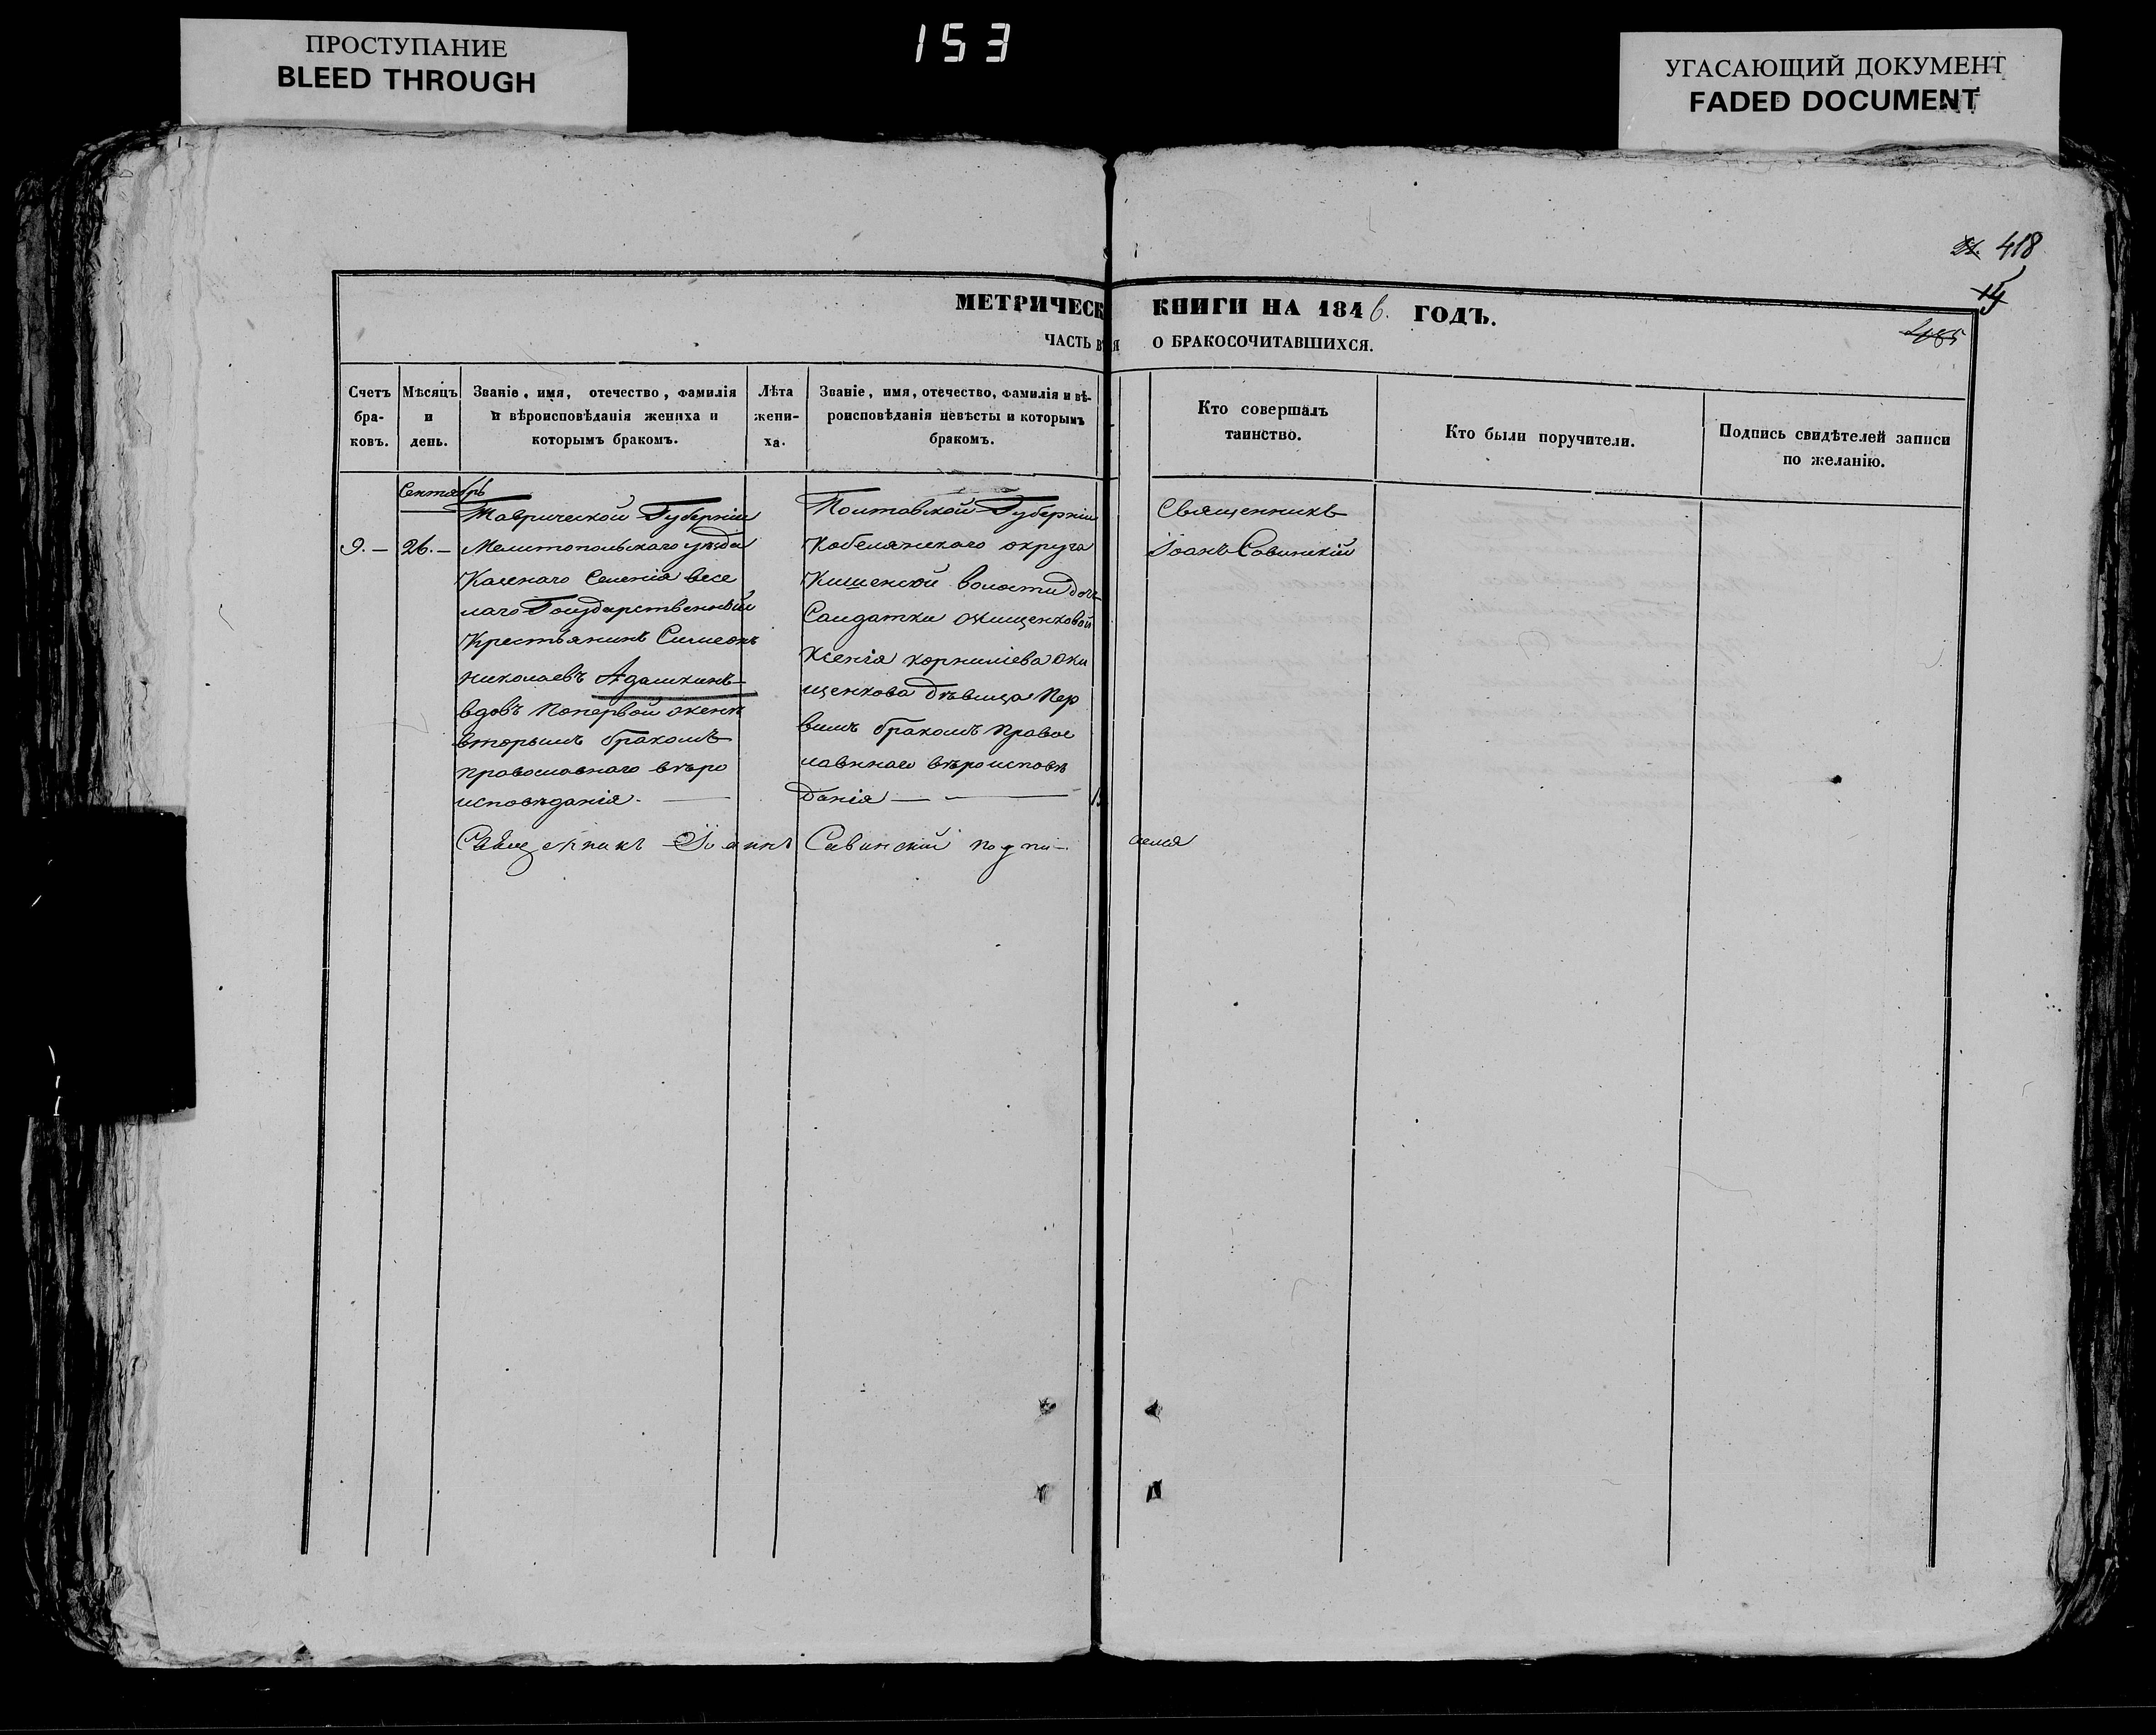 ПРОСТУПАНИЕ
BLEED THROUGH
153
УГАСАЮЩИЙ ДОКУМЕНТ
FADED DOCUMENT
418
МЕТРИЧЕСК КНИГИ НА 1846. ГОДЪ.
485
ЧАСТЬ О БРАКОСОЧИТАВШИХСЯ.
Счетъ бра-ковъ.
Мѣсяцъ и день.
Званіе, имя, отечество, фамилія
и вѣроисповѣданія жениха и
которымъ бракомъ.
Лѣта жени-ха.
Званіе, имя, отечество, фамилія и вѣ-
роисповѣданія невѣсты и которымъ
бракомъ.
Кто совершалъ
таинство.
Кто были поручители.
Подпись свидѣтелей записи
по желанію.
Сентябрь
9.— 26.—
Таврической Губерніи
Мелитопольскаго уѣзда
Казенаго Селенія весе
лаго Государственный
Крестьянинъ Симеонъ
Николаевъ Адашкинъ
вдовъ по первой женѣ
вторымъ бракомъ
православнаго вѣро
исповѣданія.
Полтавской Губерніи
Кобелянского округа
Кишенской волости дочь
Салдатки Онищенковой
Ксенія Корниліева Они
щенкова дѣвица пер
вымъ бракомъ правос
лавннаго вѣроисповѣ
данія
Священникъ
Іоанъ Савинскій
Священникъ Іоаннъ Савинскій подпи-
сался